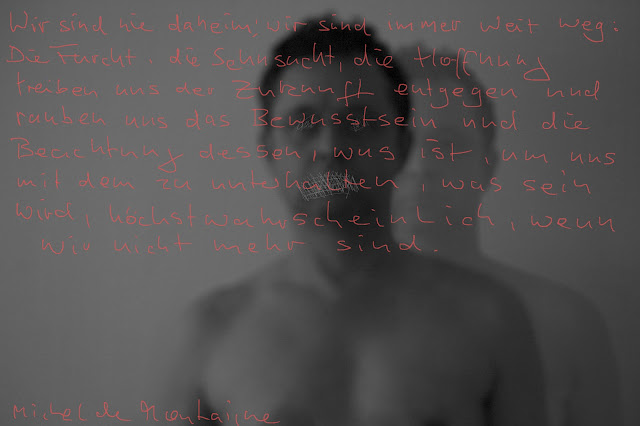 Wir sind nie daheim, wir sind immer weit weg.
Die Furcht, die Sehnsucht, die Hoffnung
treiben uns der Zukunft entgegen und
rauben uns das Bewusstsein und die
Beachtung dessen, was ist, um uns
mit dem zu unterhalten, was sein
wird, höchstwahrscheinlich, wenn
wir nicht mehr sind.
Michel de Montaigne